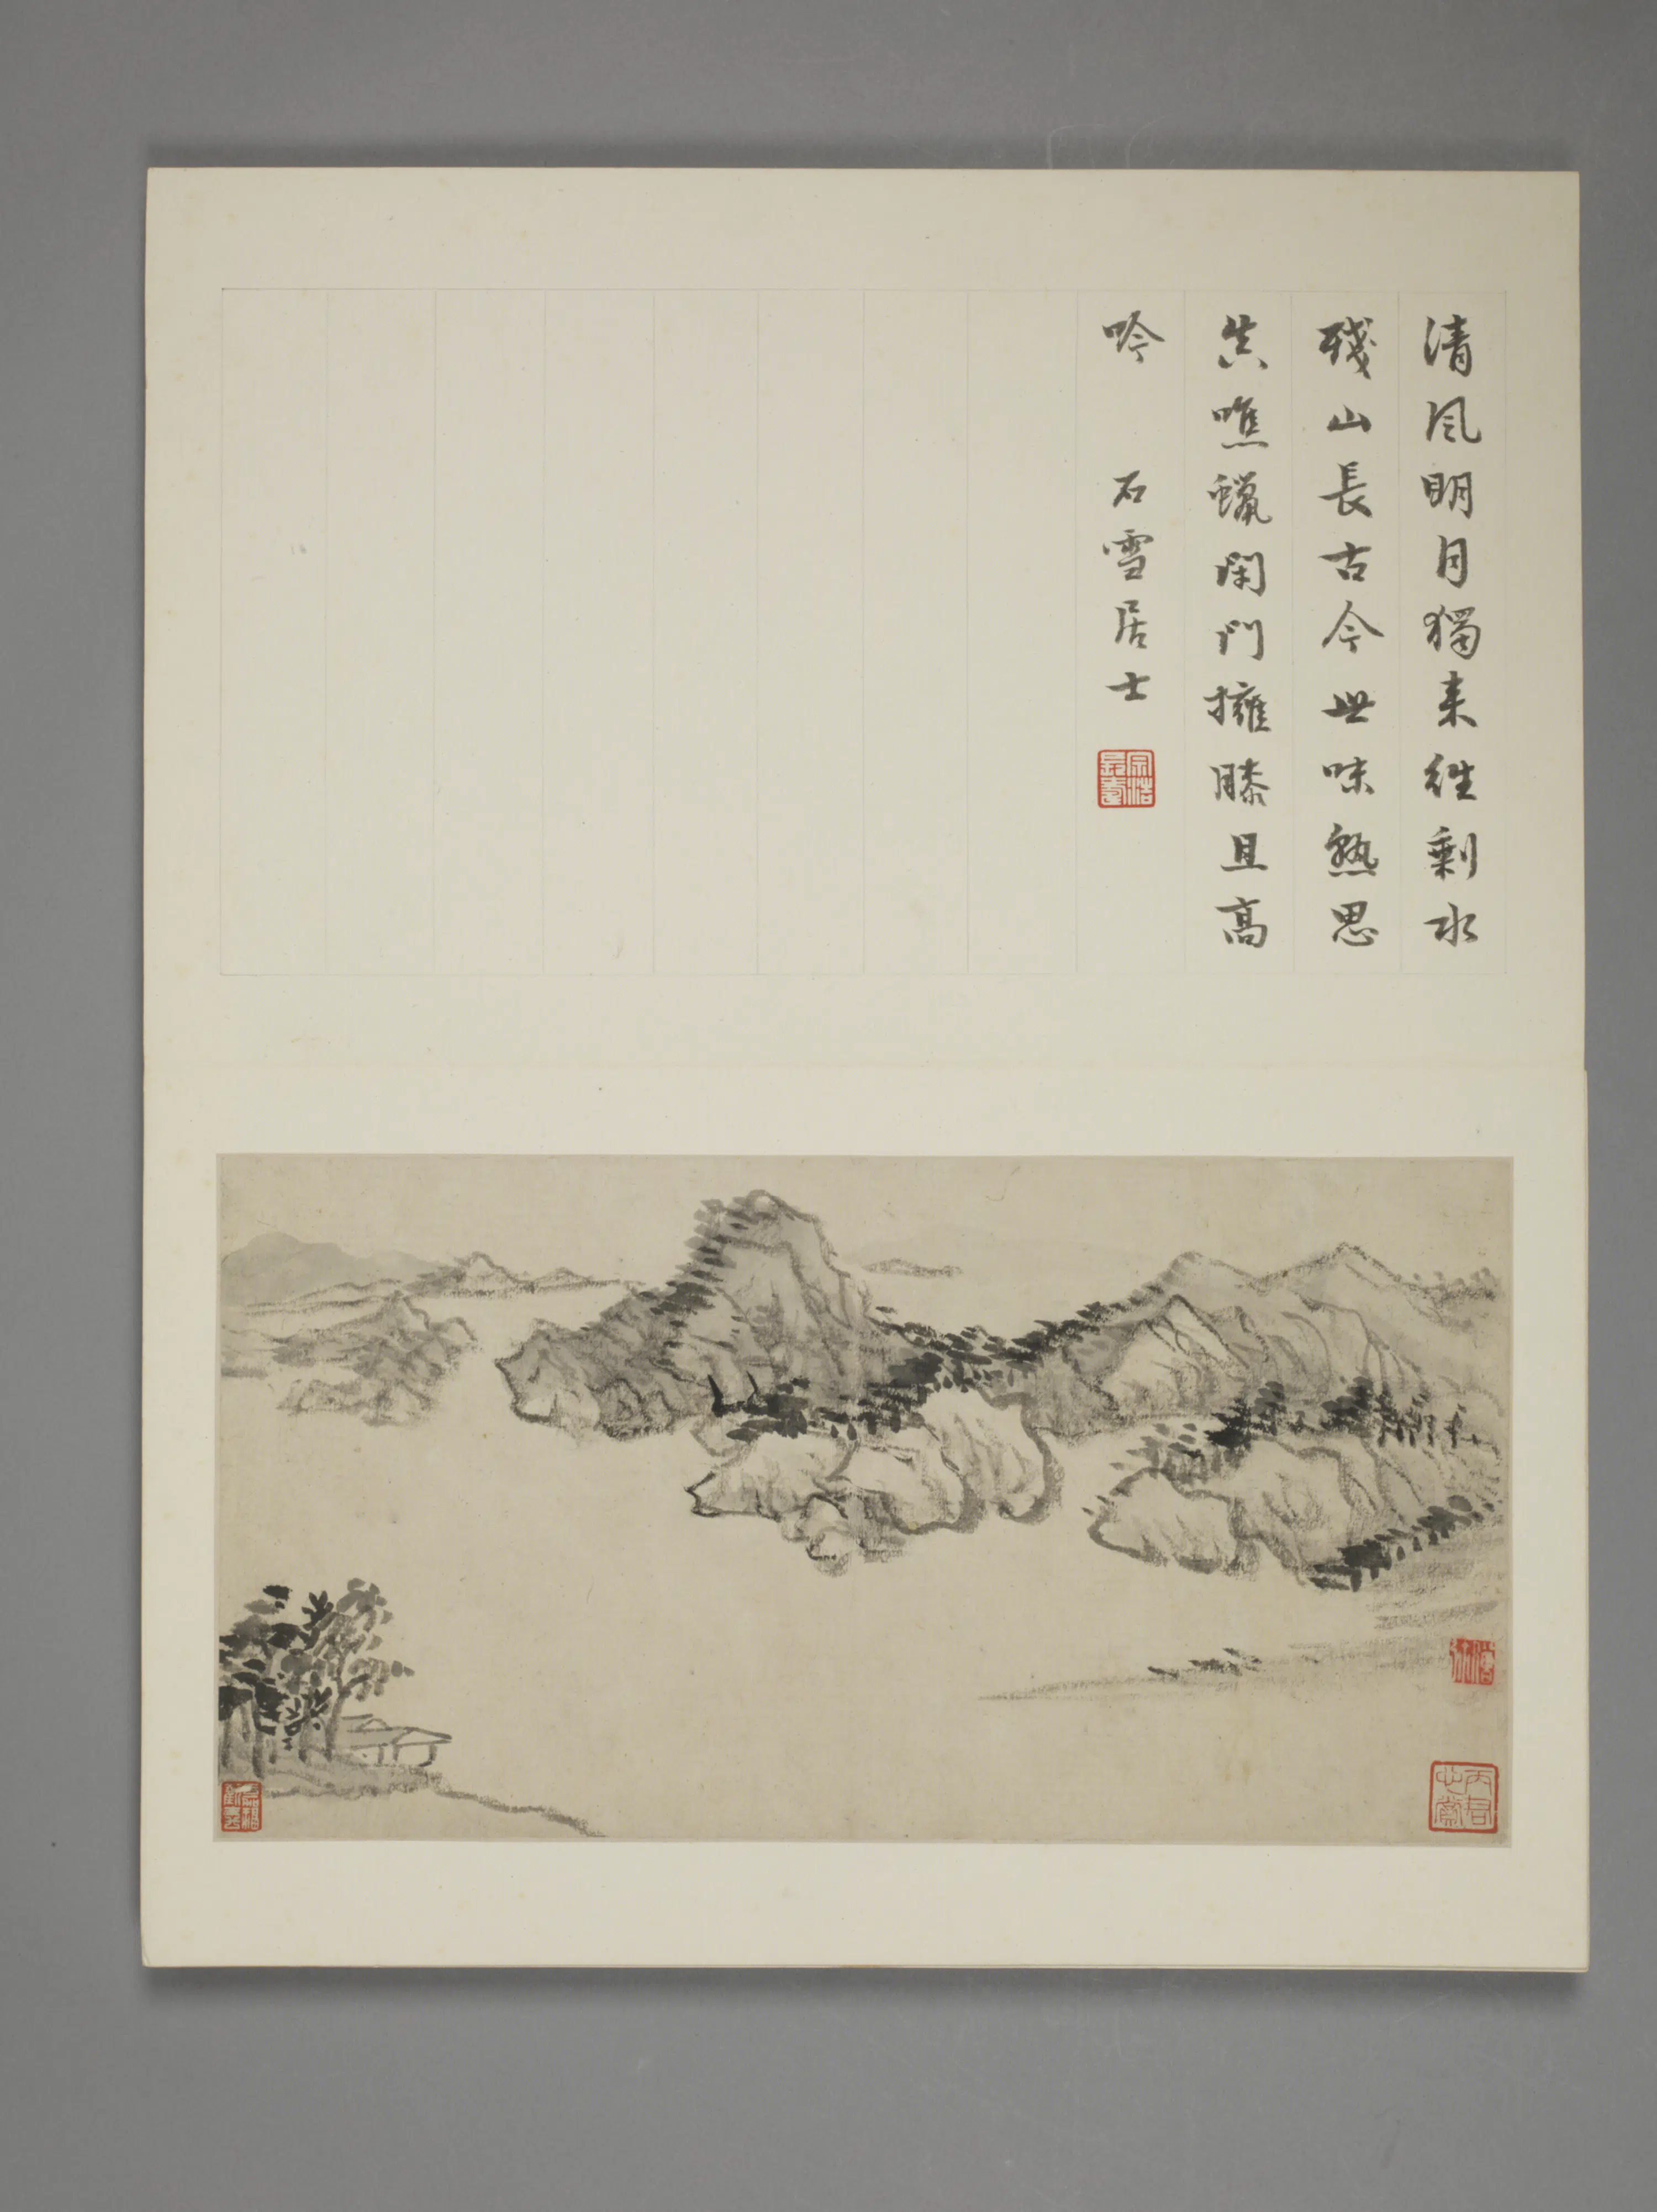 清風明月獨来往剩水
殘山長古今世味熟思
真噍蠟閑門擁膝且高
吟 石雪居士